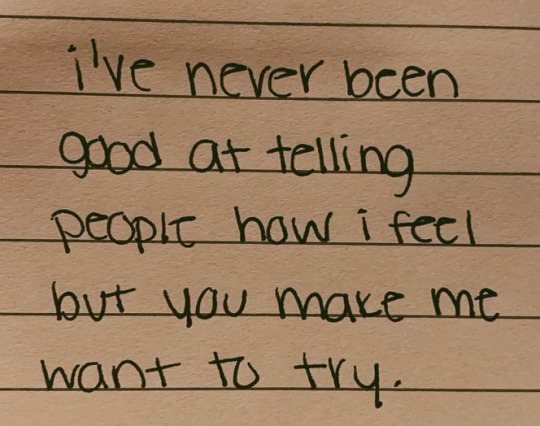 i've never been
good at telling
people how i feel
but you make me
want to try.